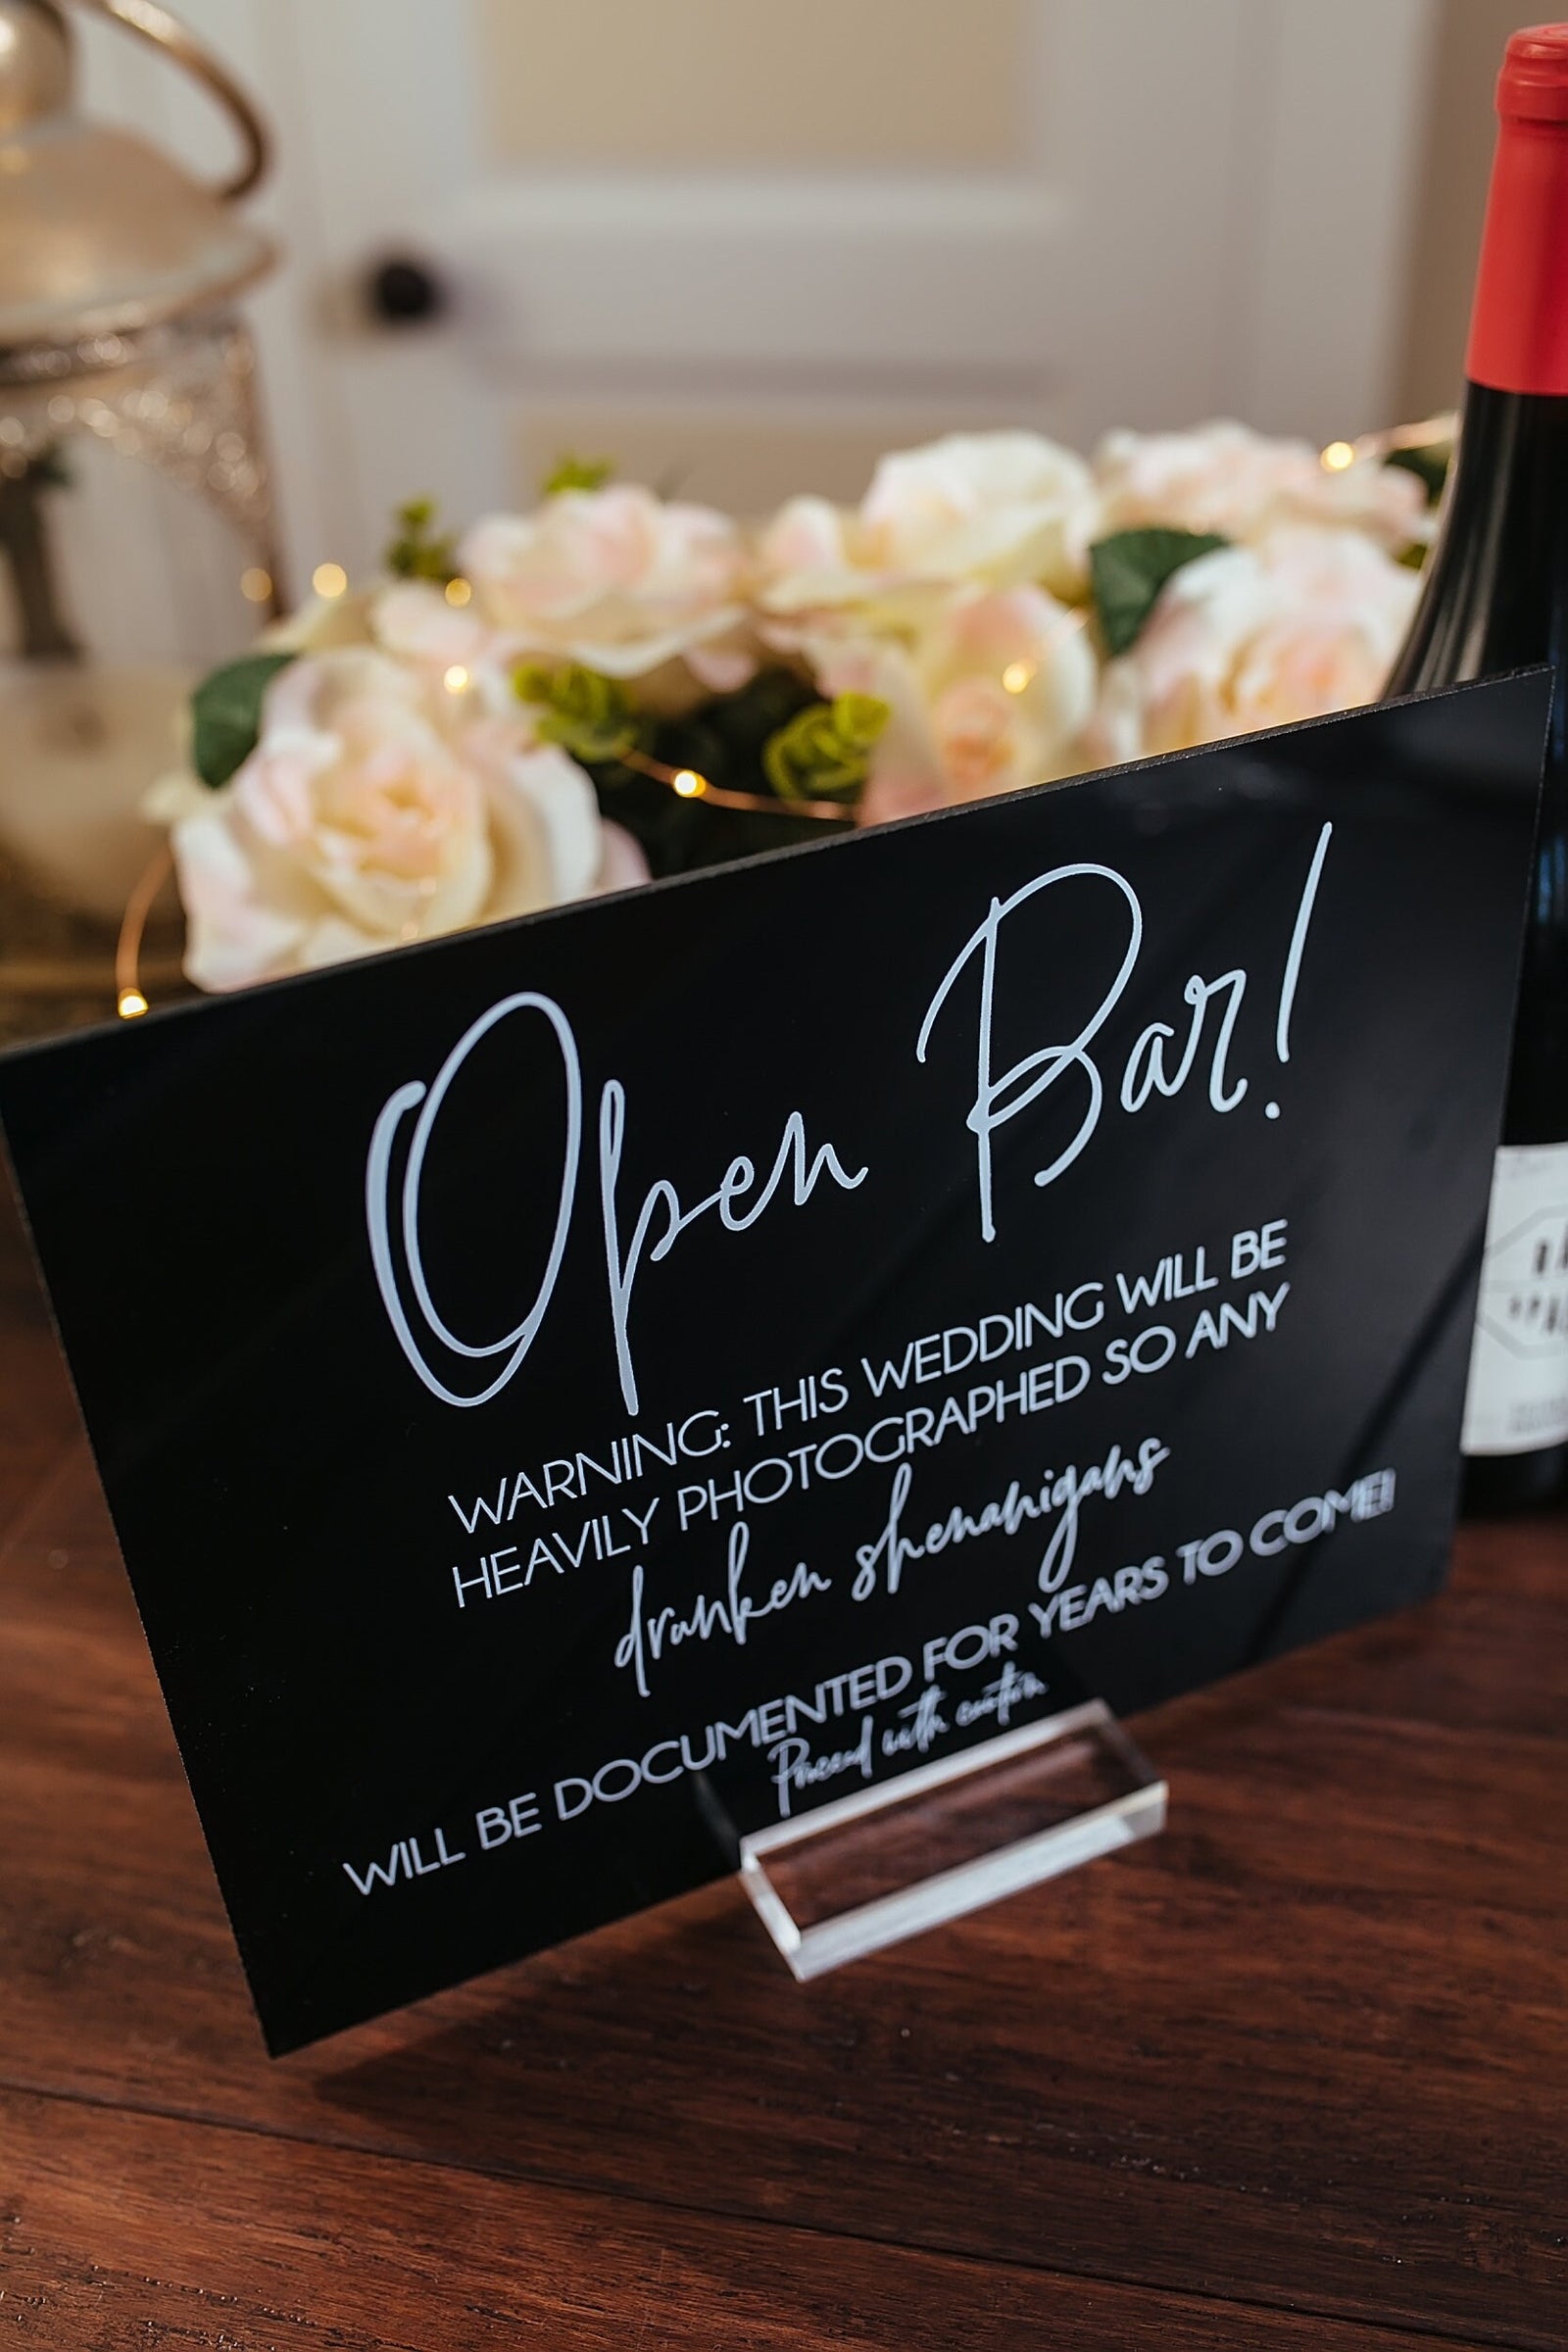 Open Bar!
WARNING: THIS WEDDING WILL BE
HEAVILY PHOTOGRAPHED SO ANY
drunken shenanigans
WILL BE DOCUMENTED FOR YEARS TO COME!
Proceed with caution